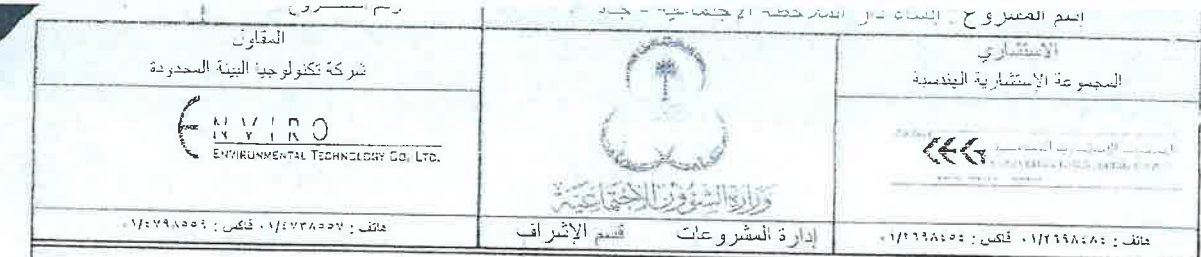 إسم المشروع : إنشاء دار الملاحظة الإجتماعية - جـ
الاستشاري
المجموعة الإستشارية الهندسية
هاتف : ٠١/٢٦٩٨٤٨٤ فاكس : ٠١/٢٦٩٨٤٥٤
وزارة الشؤون الاجتماعية
إدارة المشروعات قسم الإشراف
المقاول
شركة تكنولوجيا البيئة المحدودة
ENVIRO
ENVIRONMENTAL TECHNOLOGY CO. LTD.
هاتف : ٠١/٤٧٣٨٥٥٧ فاكس : ٠١/٤٧٩٨٥٥٩